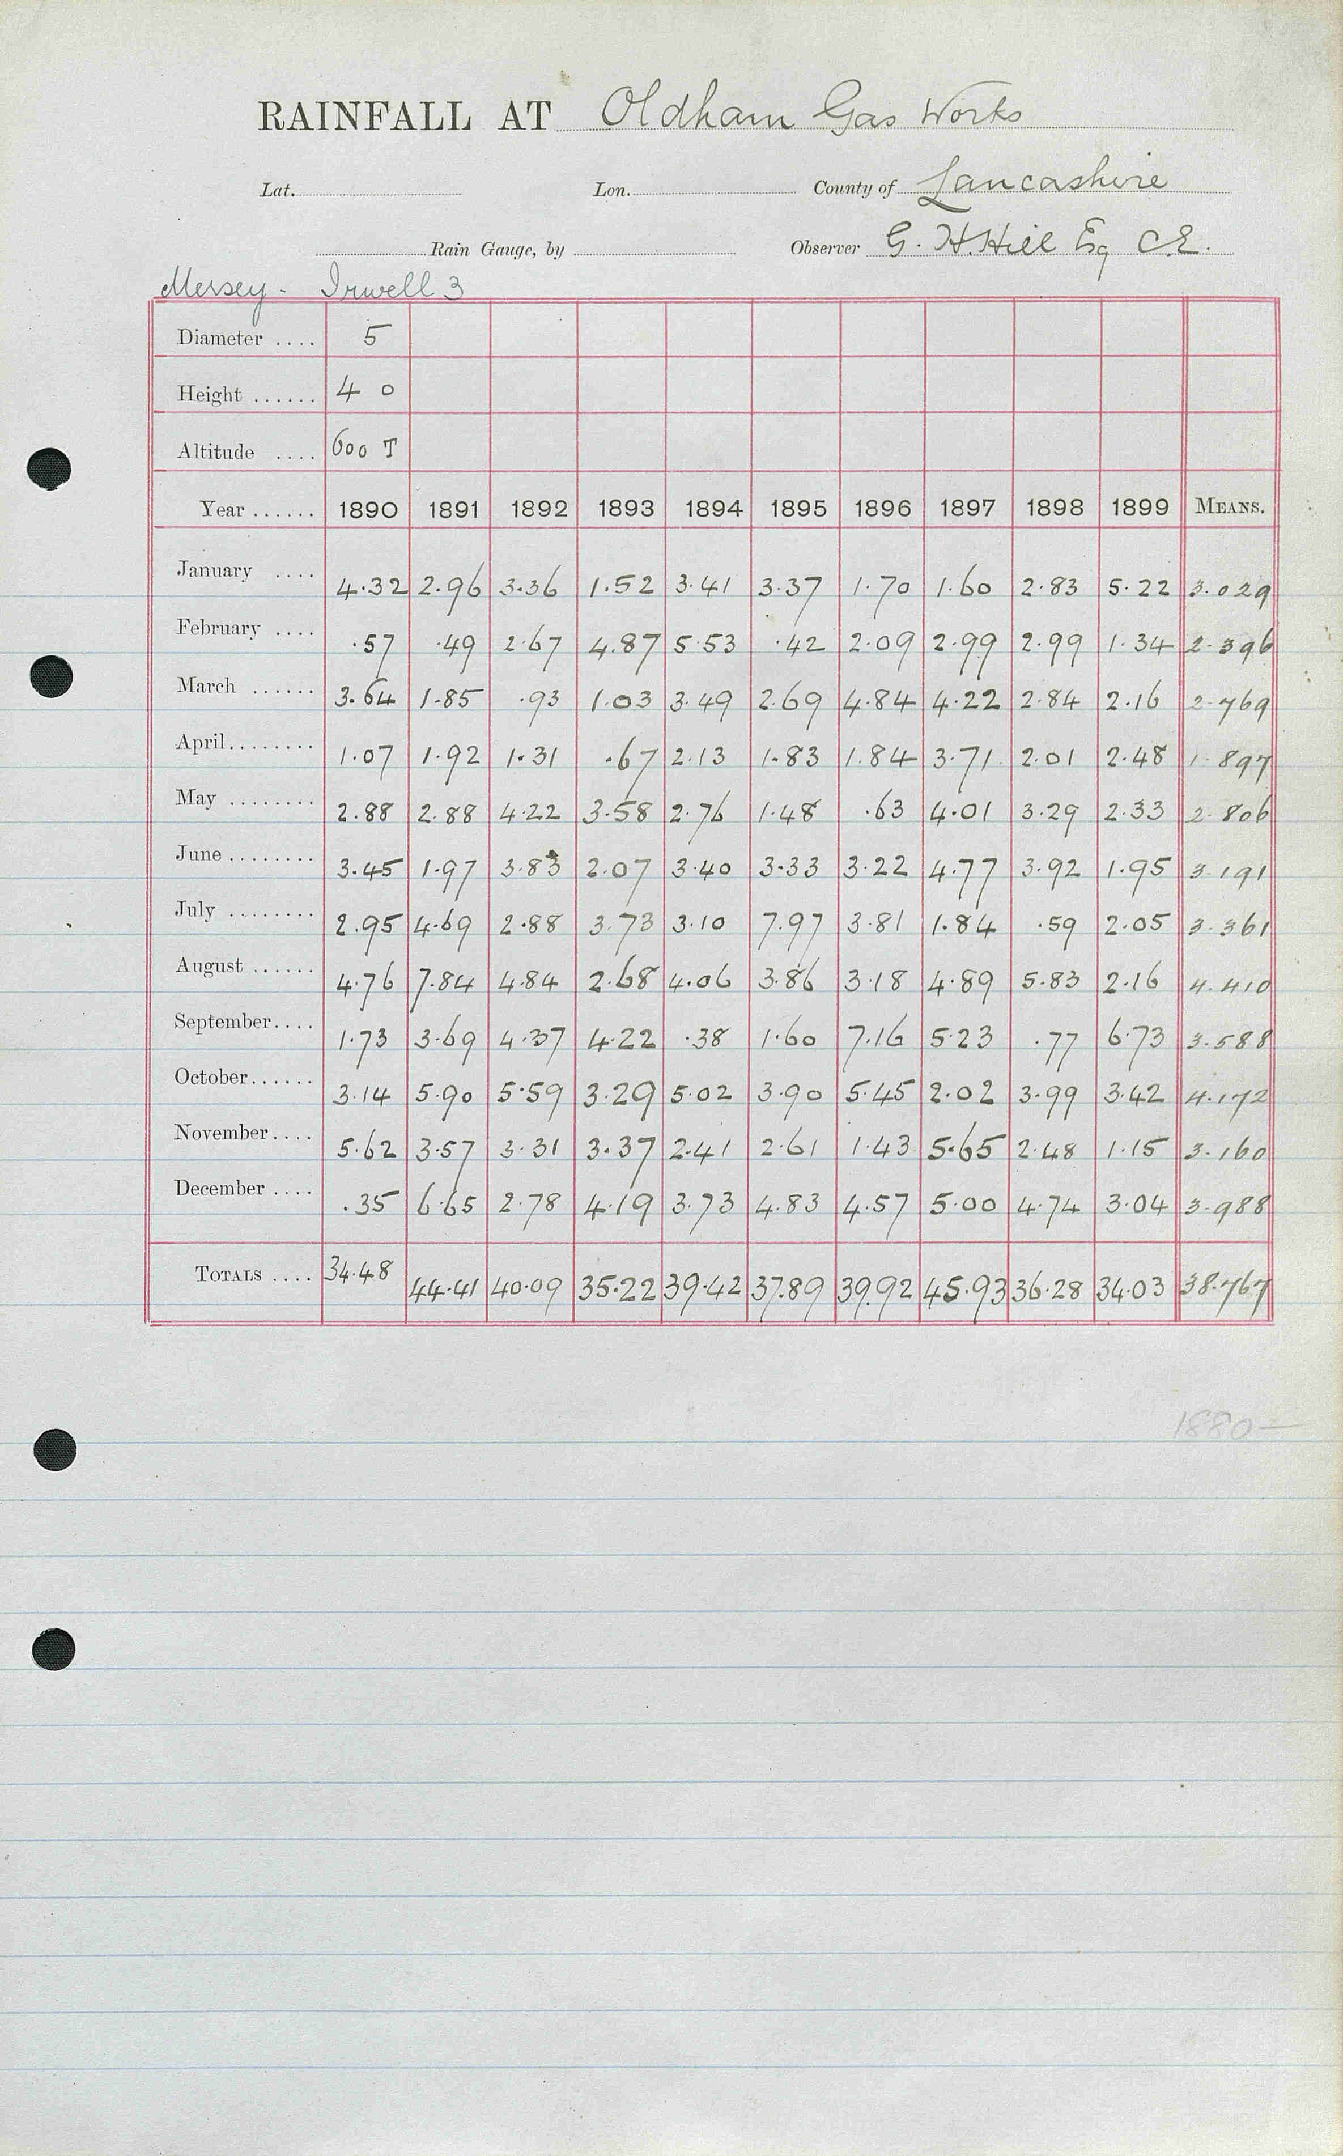 RAINFALL AT Oldham Gas Works
Lat. Lon. County of Lancashire
Rain Gauge, by Observer G. H. Hill Esq C.E.
Mersey - Irwell 3
Diameter .... 5
Height ...... 4 0
Altitude .... 600 T
Year ...... 1890 1891 1892 1893 1894 1895 1896 1897 1898 1899 MEANS.
January .... 4.32 2.96 3.36 1.52 3.41 3.37 1.70 1.60 2.83 5.22 3.029
February .... .57 .49 2.67 4.87 5.53 .42 2.09 2.99 2.99 1.34 2.396
March ...... 3.64 1.85 .93 1.03 3.49 2.69 4.84 4.22 2.84 2.16 2.769
April........ 1.07 1.92 1.31 .67 2.13 1.83 1.84 3.71 2.01 2.48 1.897
May ........ 2.88 2.88 4.22 3.58 2.76 1.48 .63 4.01 3.29 2.33 2.806
June ........ 3.45 1.97 3.83 2.07 3.40 3.33 3.22 4.77 3.92 1.95 3.191
July ........ 2.95 4.69 2.88 3.73 3.10 7.97 3.81 1.84 .59 2.05 3.361
August ...... 4.76 7.84 4.84 2.68 4.06 3.86 3.18 4.89 5.83 2.16 4.410
September.... 1.73 3.69 4.37 4.22 .38 1.60 7.16 5.23 .77 6.73 3.588
October...... 3.14 5.90 5.59 3.29 5.02 3.90 5.45 2.02 3.99 3.42 4.172
November.... 5.62 3.57 3.31 3.37 2.41 2.61 1.43 5.65 2.48 1.15 3.160
December .... .35 6.65 2.78 4.19 3.73 4.83 4.57 5.00 4.74 3.04 3.988
TOTALS .... 34.48 44.41 40.09 35.22 39.42 37.89 39.92 45.93 36.28 34.03 38.767
1880-